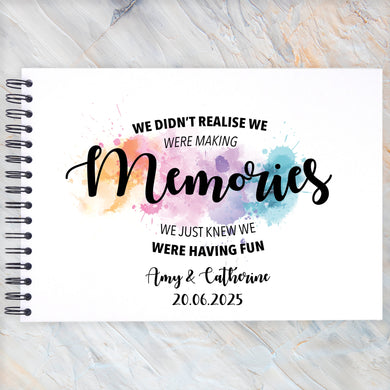 WE DIDN'T REALISE WE
WERE MAKING
Memories
WE JUST KNEW WE
WERE HAVING FUN
Amy & Catherine
20.06.2025